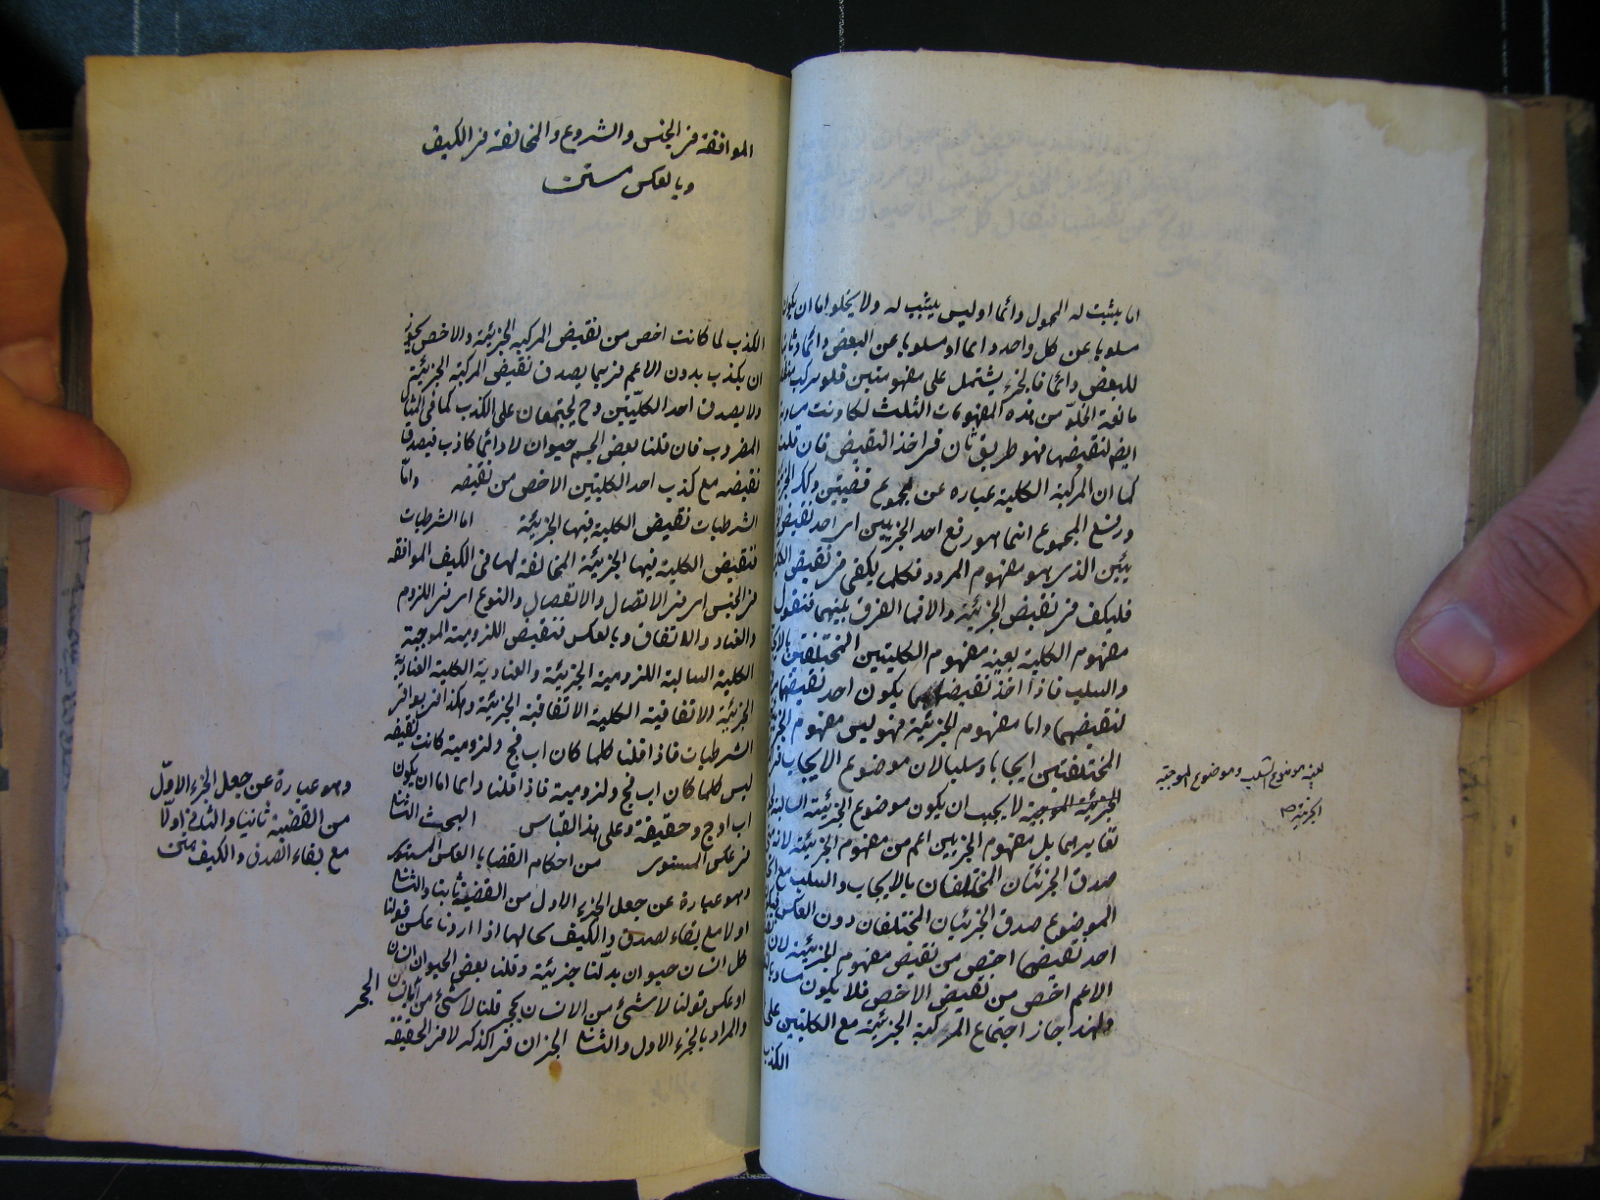 اما يثبت له المحمول دائما او ليس يثبت له ولا يخلو اما ان يكون
مسلوبا عن كل واحد دائما او مسلوبا عن البعض دائما وثابتا
للبعض دائما فالجزء يشتمل على مفهومين فلو ركب
مانعة الخلو من هذه المفهومات الثلث لكانت مساوية
ايض لنقيضها فهو طريق ثان فى اخذ النقيض فان قلت
كما ان المركبة الكلية عبارة عن مجموع قضيتين
ورفع المجموع انما هو رفع احد الجزئين اى احد نقيضى
الذى هو مفهوم المردد فكما يكفى فى نقيض الكلية
فليكف فى نقيض الجزئية والا فما الفرق بينهما فنقول
مفهوم الكلية بعينه مفهوم الكليتين المختلفتين
والسلب فاذا اخذ نقيضاهما يكون احد نقيضيهما
لنقيضهما واما مفهوم الجزئية فهو ليس مفهوم
المختلفتين ايجابا وسلبا لان موضوع الايجاب
الجزئية الموجبة لا يجب ان يكون موضوع الجزئية السالبة
تغايرهما بل مفهوم الجزئيين اعم من مفهوم الجزئية لانه
صدق الجزئتان المختلفتان بالايجاب والسلب مع
الموضوع صدق الجزئيتان المختلفتان دون العكس
احد نقيضهما اخص من نقيض مفهوم الجزئية لان
الاعم اخص من نقيض الاخص فلا يكون مساويا
ولهذا جاز اجتماع المركبة الجزئية مع الكليتين على
الكذب
بعينه موضوع السلب وموضوع الموجبة
الجزئية صح
الموافقة فى الجنس والنوع والمخالفة فى الكيف
وبالعكس متن
الكذب لما كانت اخص من نقيض المركبة الجزئية والاخص يجوز
ان يكذب بدون الاعم فربما يصدق نقيض المركبة الجزئية
ولا يصدق احد الكليتين وح يجتمعان على الكذب كما فى المثال
المضروب فان قلنا بعض الجسم حيوان لا دائما كاذب فيصدق
نقيضه مع كذب احد الكليتين الاخص من نقيضه واما
الشرطيات نقيض الكلية فيها الجزئية اما الشرطيات
فنقيض الكلية فيها الجزئية المخالفة لها فى الكيف الموافقة
فى الجنس اى فى الاتصال والانفصال والنوع اى فى اللزوم
والعناد والاتفاق وبالعكس فنقيض اللزومية الموجبة
الكلية السالبة اللزومية الجزئية والعنادية الكلية العنادية
الجزئية والاتفاقية الكلية الاتفاقية الجزئية وهكذا فى بواقى
الشرطيات فاذا قلنا كلما كان اب فج د لزومية كانت نقيضه
ليس كلما كان اب فج د لزومية فاذا قلنا دائما اما ان يكون
اب او ج د حقيقة وعلى هذا القياس البحث الثانى
فى عكس المستوى من احكام القضايا العكس المستوى
وهو عبارة عن جعل الجزء الاول من القضية ثانيا والثانى
اولا مع بقاء لصدق والكيف بحالهما اذا اردنا عكس قولنا
كل انسان حيوان بدلنا جزئية وقلنا بعض الحيوان انسان
او عكس قولنا لا شئ من الانسان بحجر قلنا لا شئ من
الحجر
والمراد بالجزء الاول والثانى الجزان فى الذكر لا فى الحقيقة
وهو عبارة عن جعل الجزء الاول
من القضية ثانيا والثانى اولا
مع بقاء الصدق والكيف متن